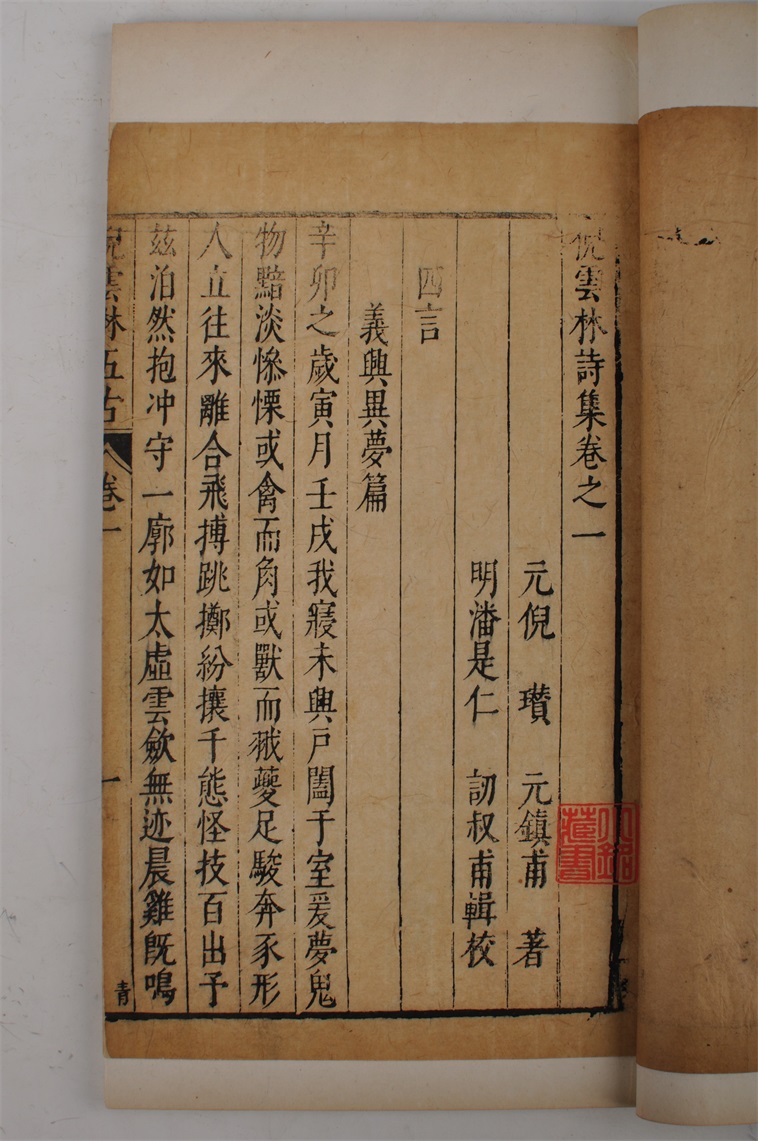 倪雲林詩集卷之一
元倪 瓚 元鎮甫 著
明潘是仁 訒叔甫輯校
四言
義興異夢篇
辛卯之歲寅月壬戌我寢未興戸闔于室爰夢鬼
物黯淡慘慄或禽而角或獸而翄夔足駿奔豕形
人立往來離合飛搏跳擲紛攘千態怪技百出予
茲泊然抱冲守一廓如太虛雲歛無迹晨雞旣鳴
倪雲林五古 卷一 一 青
藏書